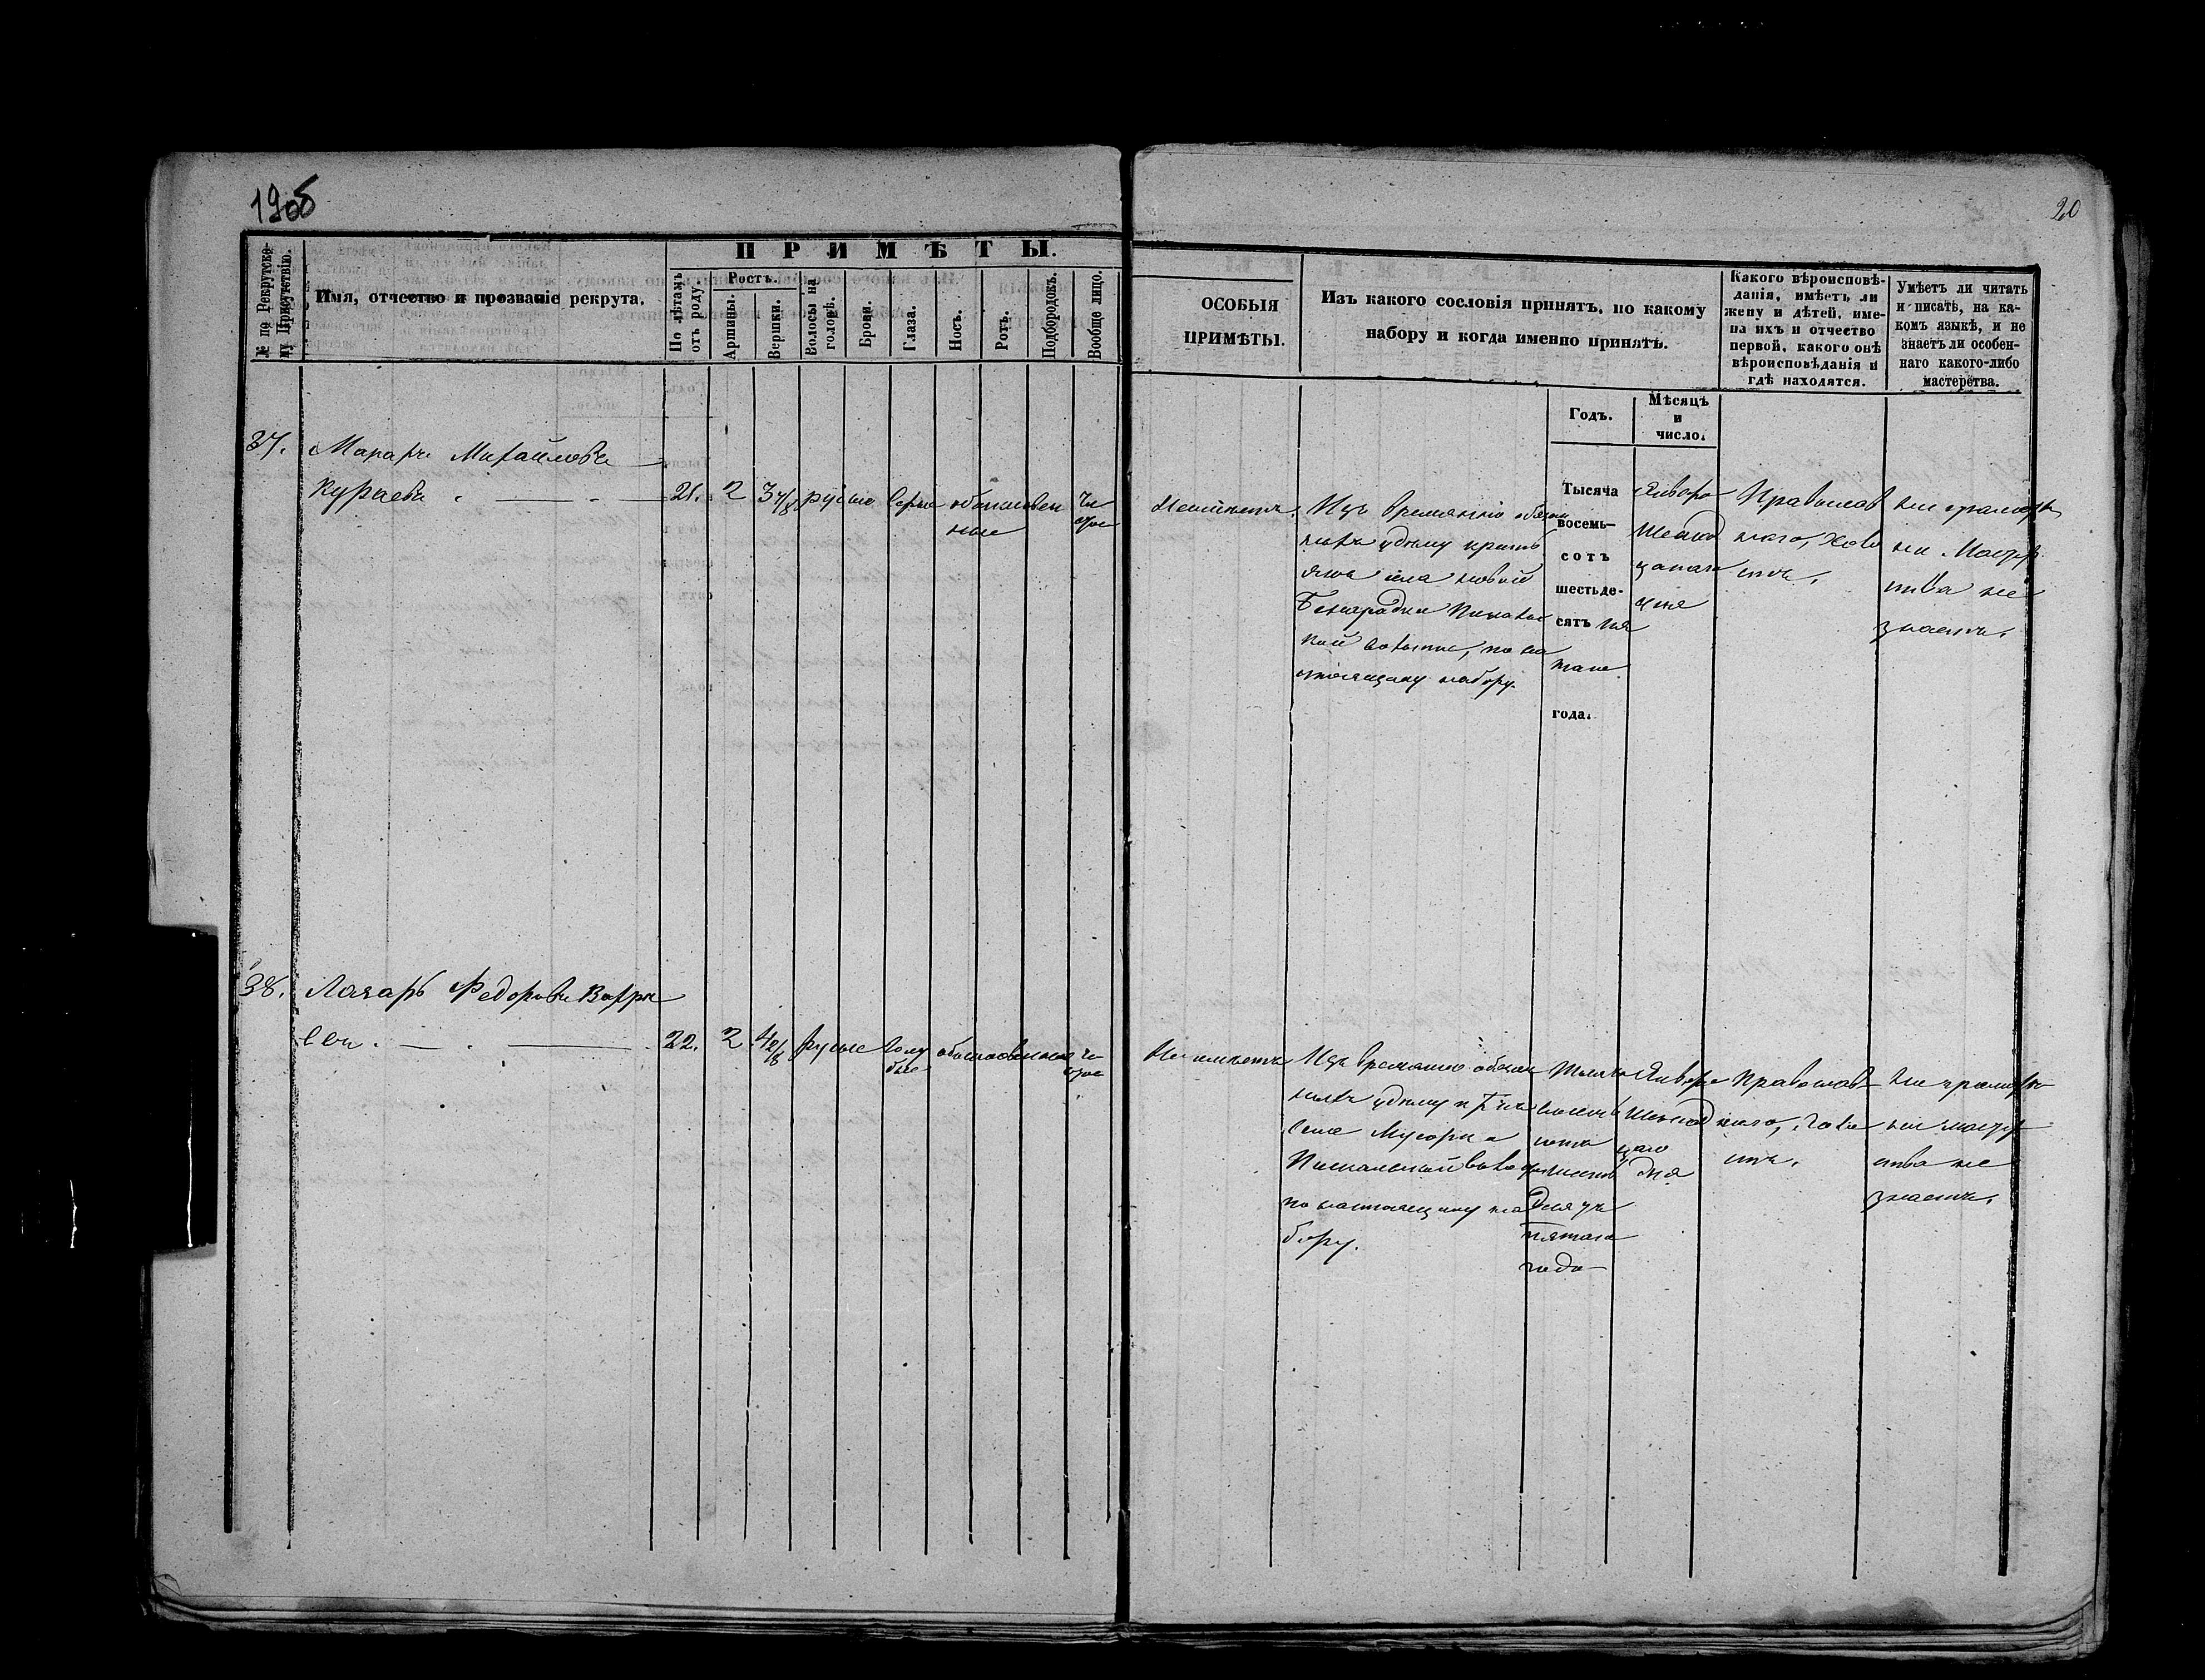 19об
20
№ по Рекрутско-
му Присутствію.
Имя, отчество и прозваніе рекрута.
ПРИМѢТЫ.
По лѣтамъ
отъ роду.
Ростъ.
Аршины.
Вершки.
Волосы на
головѣ.
Брови.
Глаза.
Носъ.
Ротъ.
Подбородокъ.
Вообще лицо.
ОСОБЫЯ
ПРИМѢТЫ.
Изъ какого сословія принятъ, по какому
набору и когда именно принятъ.
Какого вѣроисповѣ-
данія, имѣетъ ли
жену и дѣтей, име-
на ихъ и отчество
первой, какого онѣ
вѣроисповѣданія и
гдѣ находятся.
Умѣетъ ли читать
и писать, на ка-
комъ языкѣ, и не
знаетъ ли особен-
наго какого-либо
мастерства.
Годъ.
Мѣсяцъ
и
число.
37.
Макаръ Михайловъ
Кураевъ
21. 2 3 4/8 русые серые обыкновен
ные
чи
стое
Неимѣетъ.
Изъ временно обязан
ныхъ удѣлу кресть
янъ села новой
по на
стоящему набору.
Тысяча
восемь-
сотъ
шестьде-
сятъ пя
таго
года.
Января
Шестнад
цатаго
дня
Православ
наго, Холо
стъ.
Ни грамоты
ни мастер
ства не
знаетъ.
38.
Лазарь Федоровъ Вахра
евъ
22. 2 4 2/8 русые голу
бые
обыкновенное чи
стое
Не имѣетъ
Изъ временно обязан
ныхъ удѣлу
села Мусорки
по настоящему на
бору.
Тысяча
восемь
сотъ
шесть
десятъ
пятаго
года
Января
Шестнад
цаго
дня
Православ
наго, холо
стъ.
Ни грамоты
ни мастер
ства не
знаетъ.